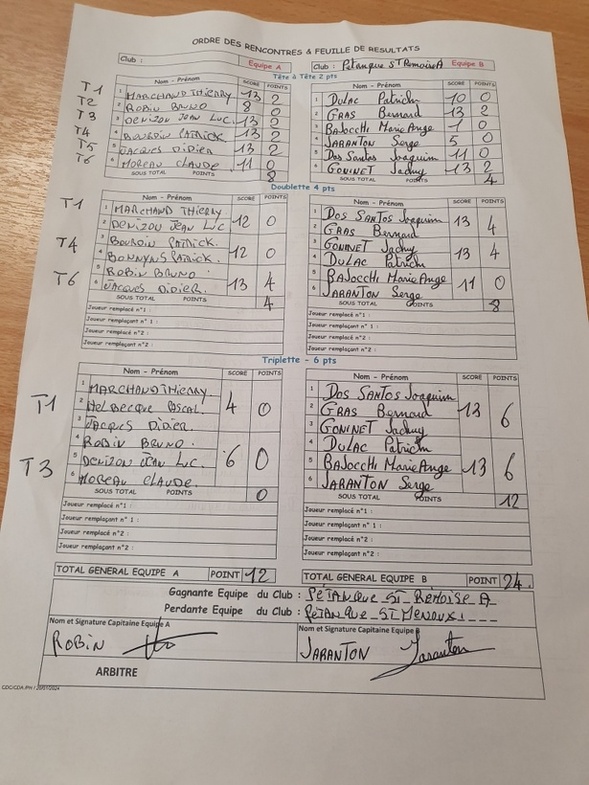 ORDRE DES RENCONTRES & FEUILLE DE RESULTATS
Club : Equipe A Club : Pétanque St RemoiseA Equipe B
Tête à Tête 2 pts
Nom - Prénom SCORE POINTS Nom - Prénom SCORE POINTS
T1 1 MARCHAND THIERRY 13 2 1 DULAC Patrick 10 0
T2 2 ROBIN BRUNO 8 0 2 GRAS Bernard 13 2
T3 3 DENIZON JEAN LUC. 13 2 3 BAJOCCHI Marie Ange 7 0
T4 4 BOURDIN PATRICK. 13 2 4 JARANTON Serge 5 0
T5 5 JACQUES DIDIER 13 2 5 Dos Santos Joaquim 11 0
T6 6 MOREAU CLAUDE. 11 0 6 GONINET Jacky 13 2
SOUS TOTAL POINTS 8 SOUS TOTAL POINTS 4
Doublette 4 pts
Nom - Prénom SCORE POINTS Nom - Prénom SCORE POINTS
T1 1 MARCHAND THIERRY 12 0 1 DOS SANTOS Joaquim 13 4
2 DENIZON JEAN LUC 2 GRAS Bernard
T4 3 BOURDIN PATRICK. 12 0 3 GONINET Jacky 13 4
4 BONNYNS PATRICK. 4 DULAC Patrick
T6 5 ROBIN BRUNO 13 4 5 BAJOCCHI Marie Ange 11 0
6 JACQUES DIDIER. 6 JARANTON Serge
SOUS TOTAL POINTS 4 SOUS TOTAL POINTS 8
Joueur remplacé n°1 : Joueur remplacé n°1 :
Joueur remplaçant n° 1 : Joueur remplaçant n° 1 :
Joueur remplacé n°2 : Joueur remplacé n°2 :
Joueur remplaçant n°2 : Joueur remplaçant n°2 :
Triplette - 6 pts
Nom - Prénom SCORE POINTS Nom - Prénom SCORE POINTS
T1 1 MARCHAND THIERRY. 4 0 1 DOS SANTOS Joaquim 13 6
2 HELBECQUE PASCAL. 2 GRAS Bernard
3 JACQUES DIDIER 3 GONINET Jacky
T3 4 ROBIN BRUNO. 6 0 4 DULAC Patrick 13 6
5 DENIZON JEAN LUC. 5 BAJOCCHI Marie Ange
6 MOREAU CLAUDE. 6 JARANTON Serge
SOUS TOTAL POINTS 0 SOUS TOTAL POINTS 12
Joueur remplacé n°1 : Joueur remplacé n°1 :
Joueur remplaçant n° 1 : Joueur remplaçant n° 1 :
Joueur remplacé n°2 : Joueur remplacé n°2 :
Joueur remplaçant n°2 : Joueur remplaçant n°2 :
TOTAL GENERAL EQUIPE A POINT 12 TOTAL GENERAL EQUIPE B POINT 24.
Gagnante Equipe du Club : PÉTANQUE ST REMOISE A
Perdante Equipe du Club : PÉTANQUE ST MENOUX
Nom et Signature Capitaine Equipe A Nom et Signature Capitaine Equipe B
ROBIN JARANTON Jaranton
ARBITRE